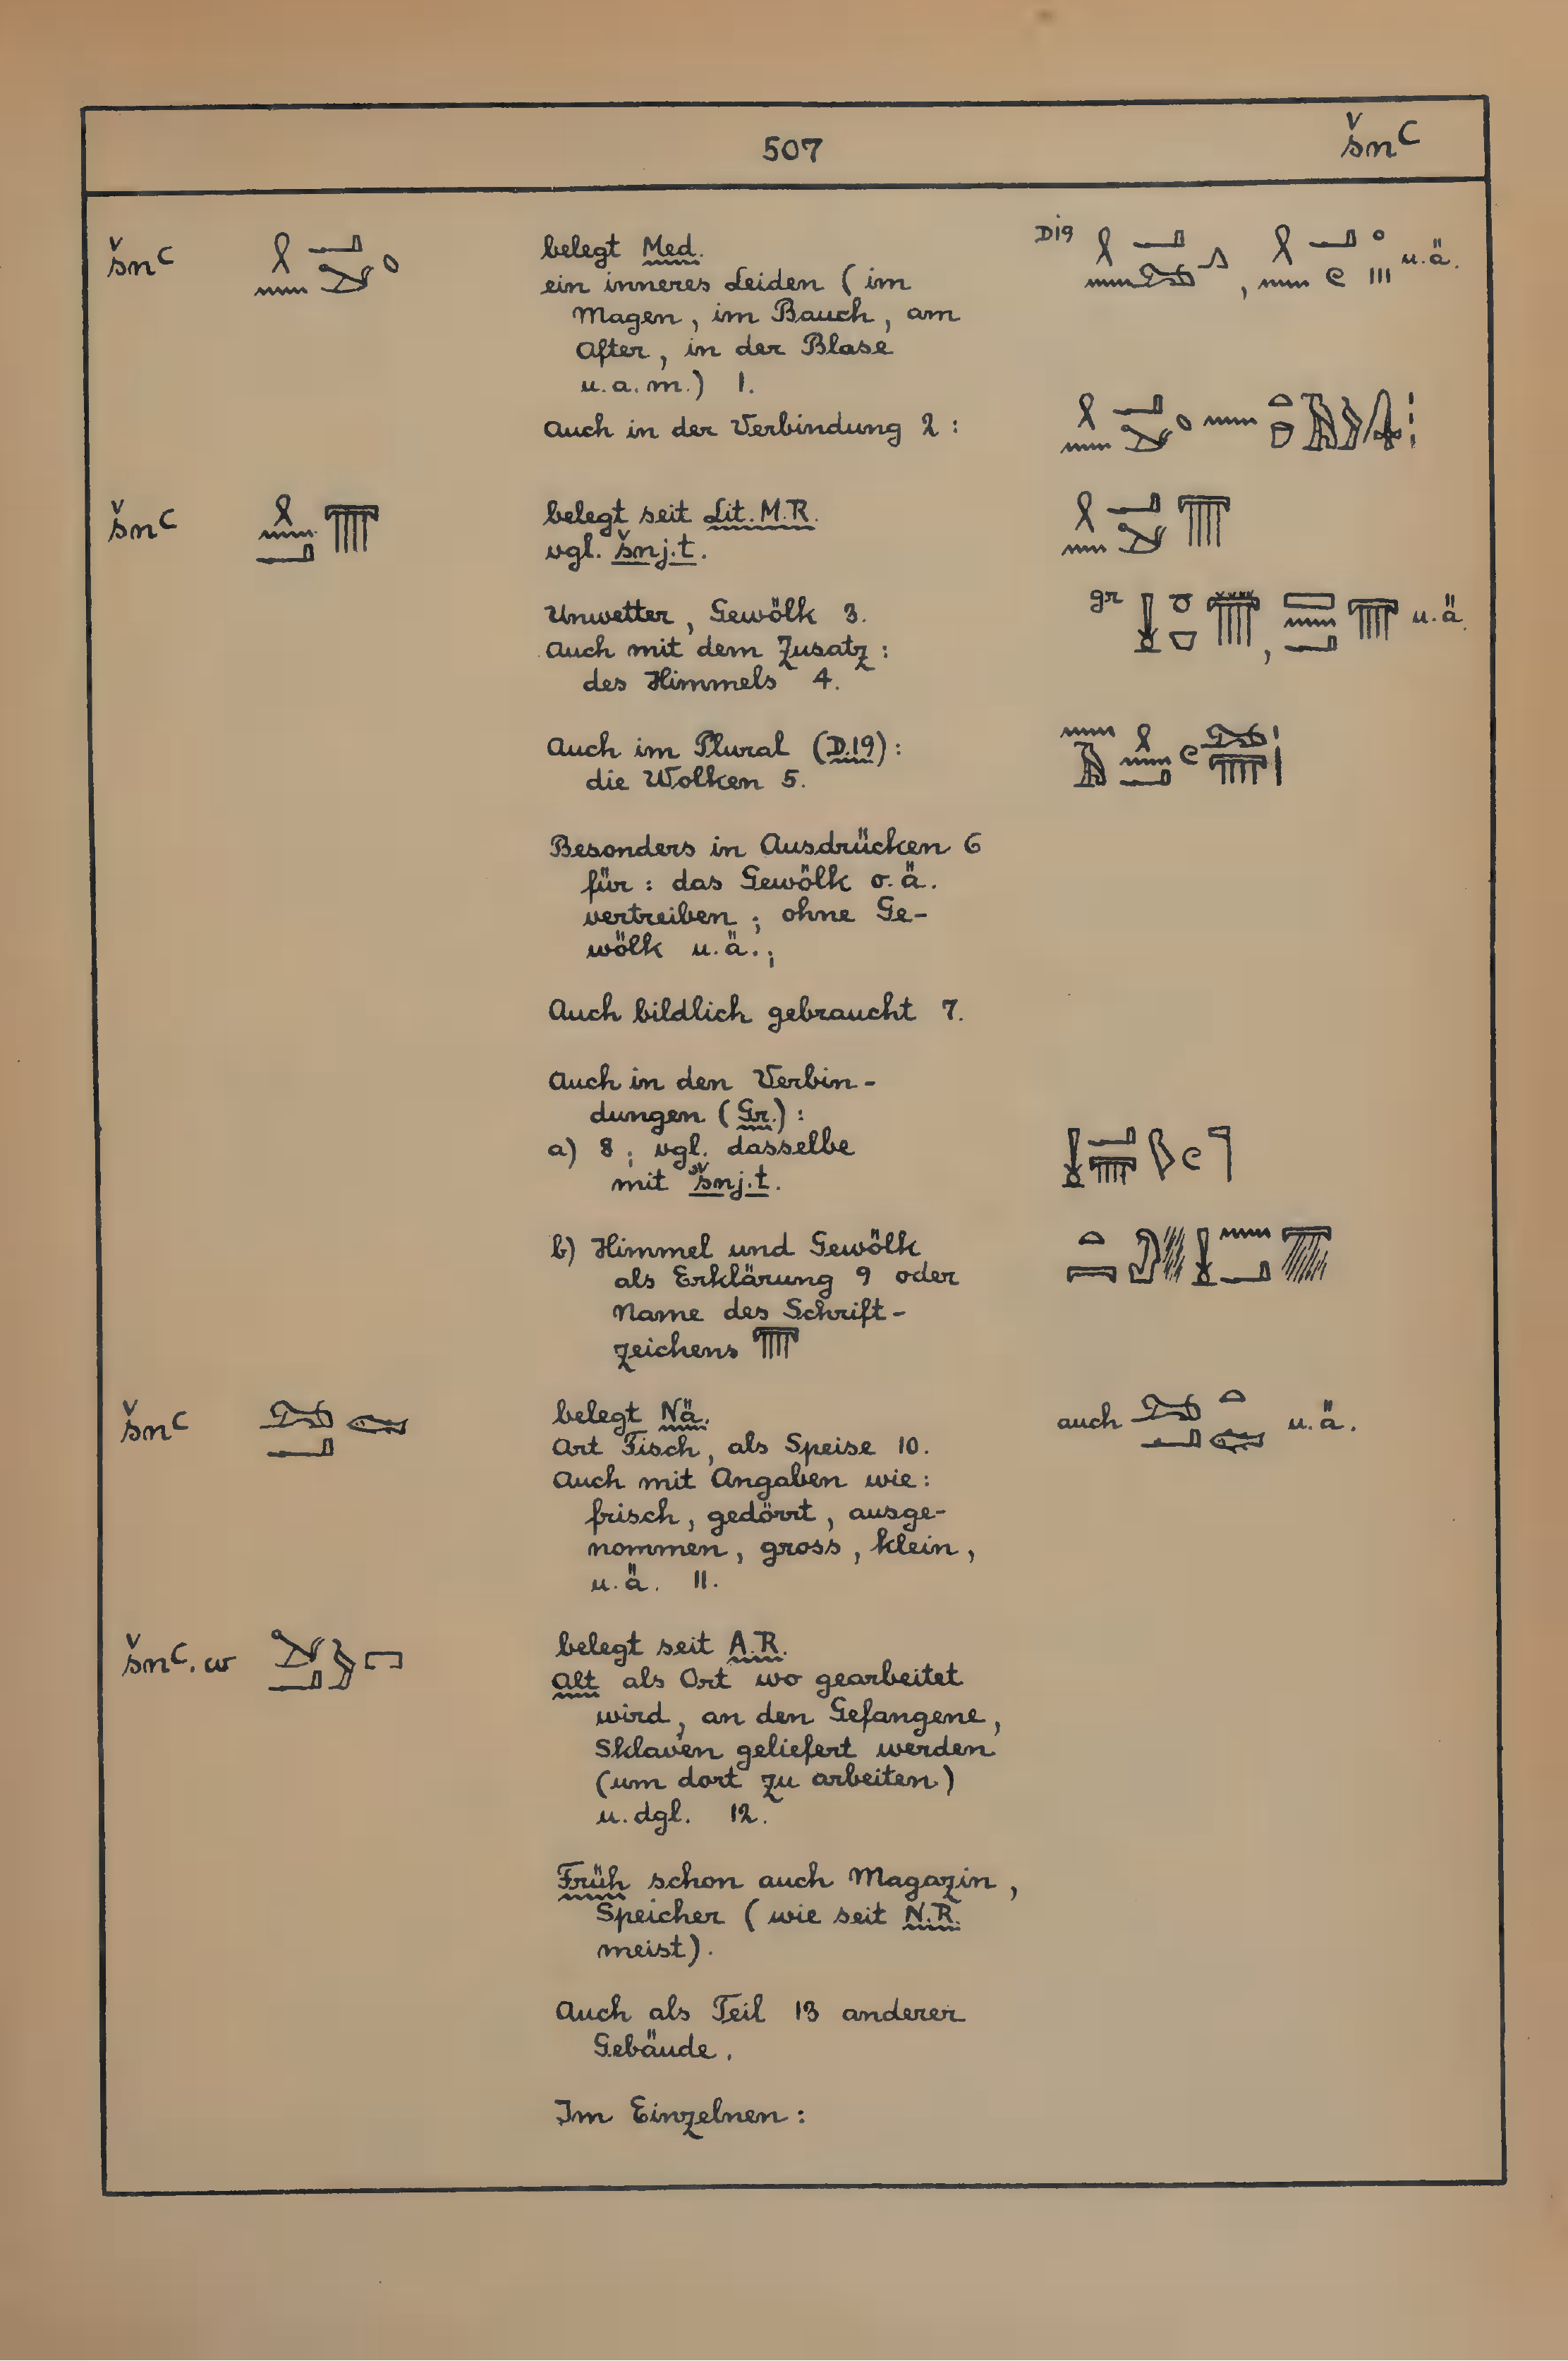 507 šnꜥ
šnꜥ belegt Med. D19 , u.ä.
ein inneres Leiden (im
Magen, im Bauch, am
After, in der Blase
u.a.m.) 1.
Auch in der Verbindung 2:
šnꜥ belegt seit Lit. M.R.
vgl. šnj.t.
Unwetter, Gewölk 3. gr , u.ä.
Auch mit dem Zusatz:
des Himmels 4.
Auch im Plural (D.19):
die Wolken 5.
Besonders in Ausdrücken 6
für: das Gewölk o.ä.
vertreiben; ohne Ge-
wölk u.ä.;
Auch bildlich gebraucht 7.
Auch in den Verbin-
dungen (Gr.):
a) 8; vgl. dasselbe
mit šnj.t.
b) Himmel und Gewölk
als Erklärung 9 oder
Name des Schrift-
zeichens
šnꜥ belegt Nä. auch u.ä.
Art Fisch, als Speise 10.
Auch mit Angaben wie:
frisch, gedörrt, ausge-
nommen, gross, klein,
u.ä. 11.
šnꜥ.w belegt seit A.R.
Alt als Ort wo gearbeitet
wird, an den Gefangene,
Sklaven geliefert werden
(um dort zu arbeiten)
u.dgl. 12.
Früh schon auch Magazin,
Speicher (wie seit N.R.
meist).
Auch als Teil 13 anderer
Gebäude.
Im Einzelnen: